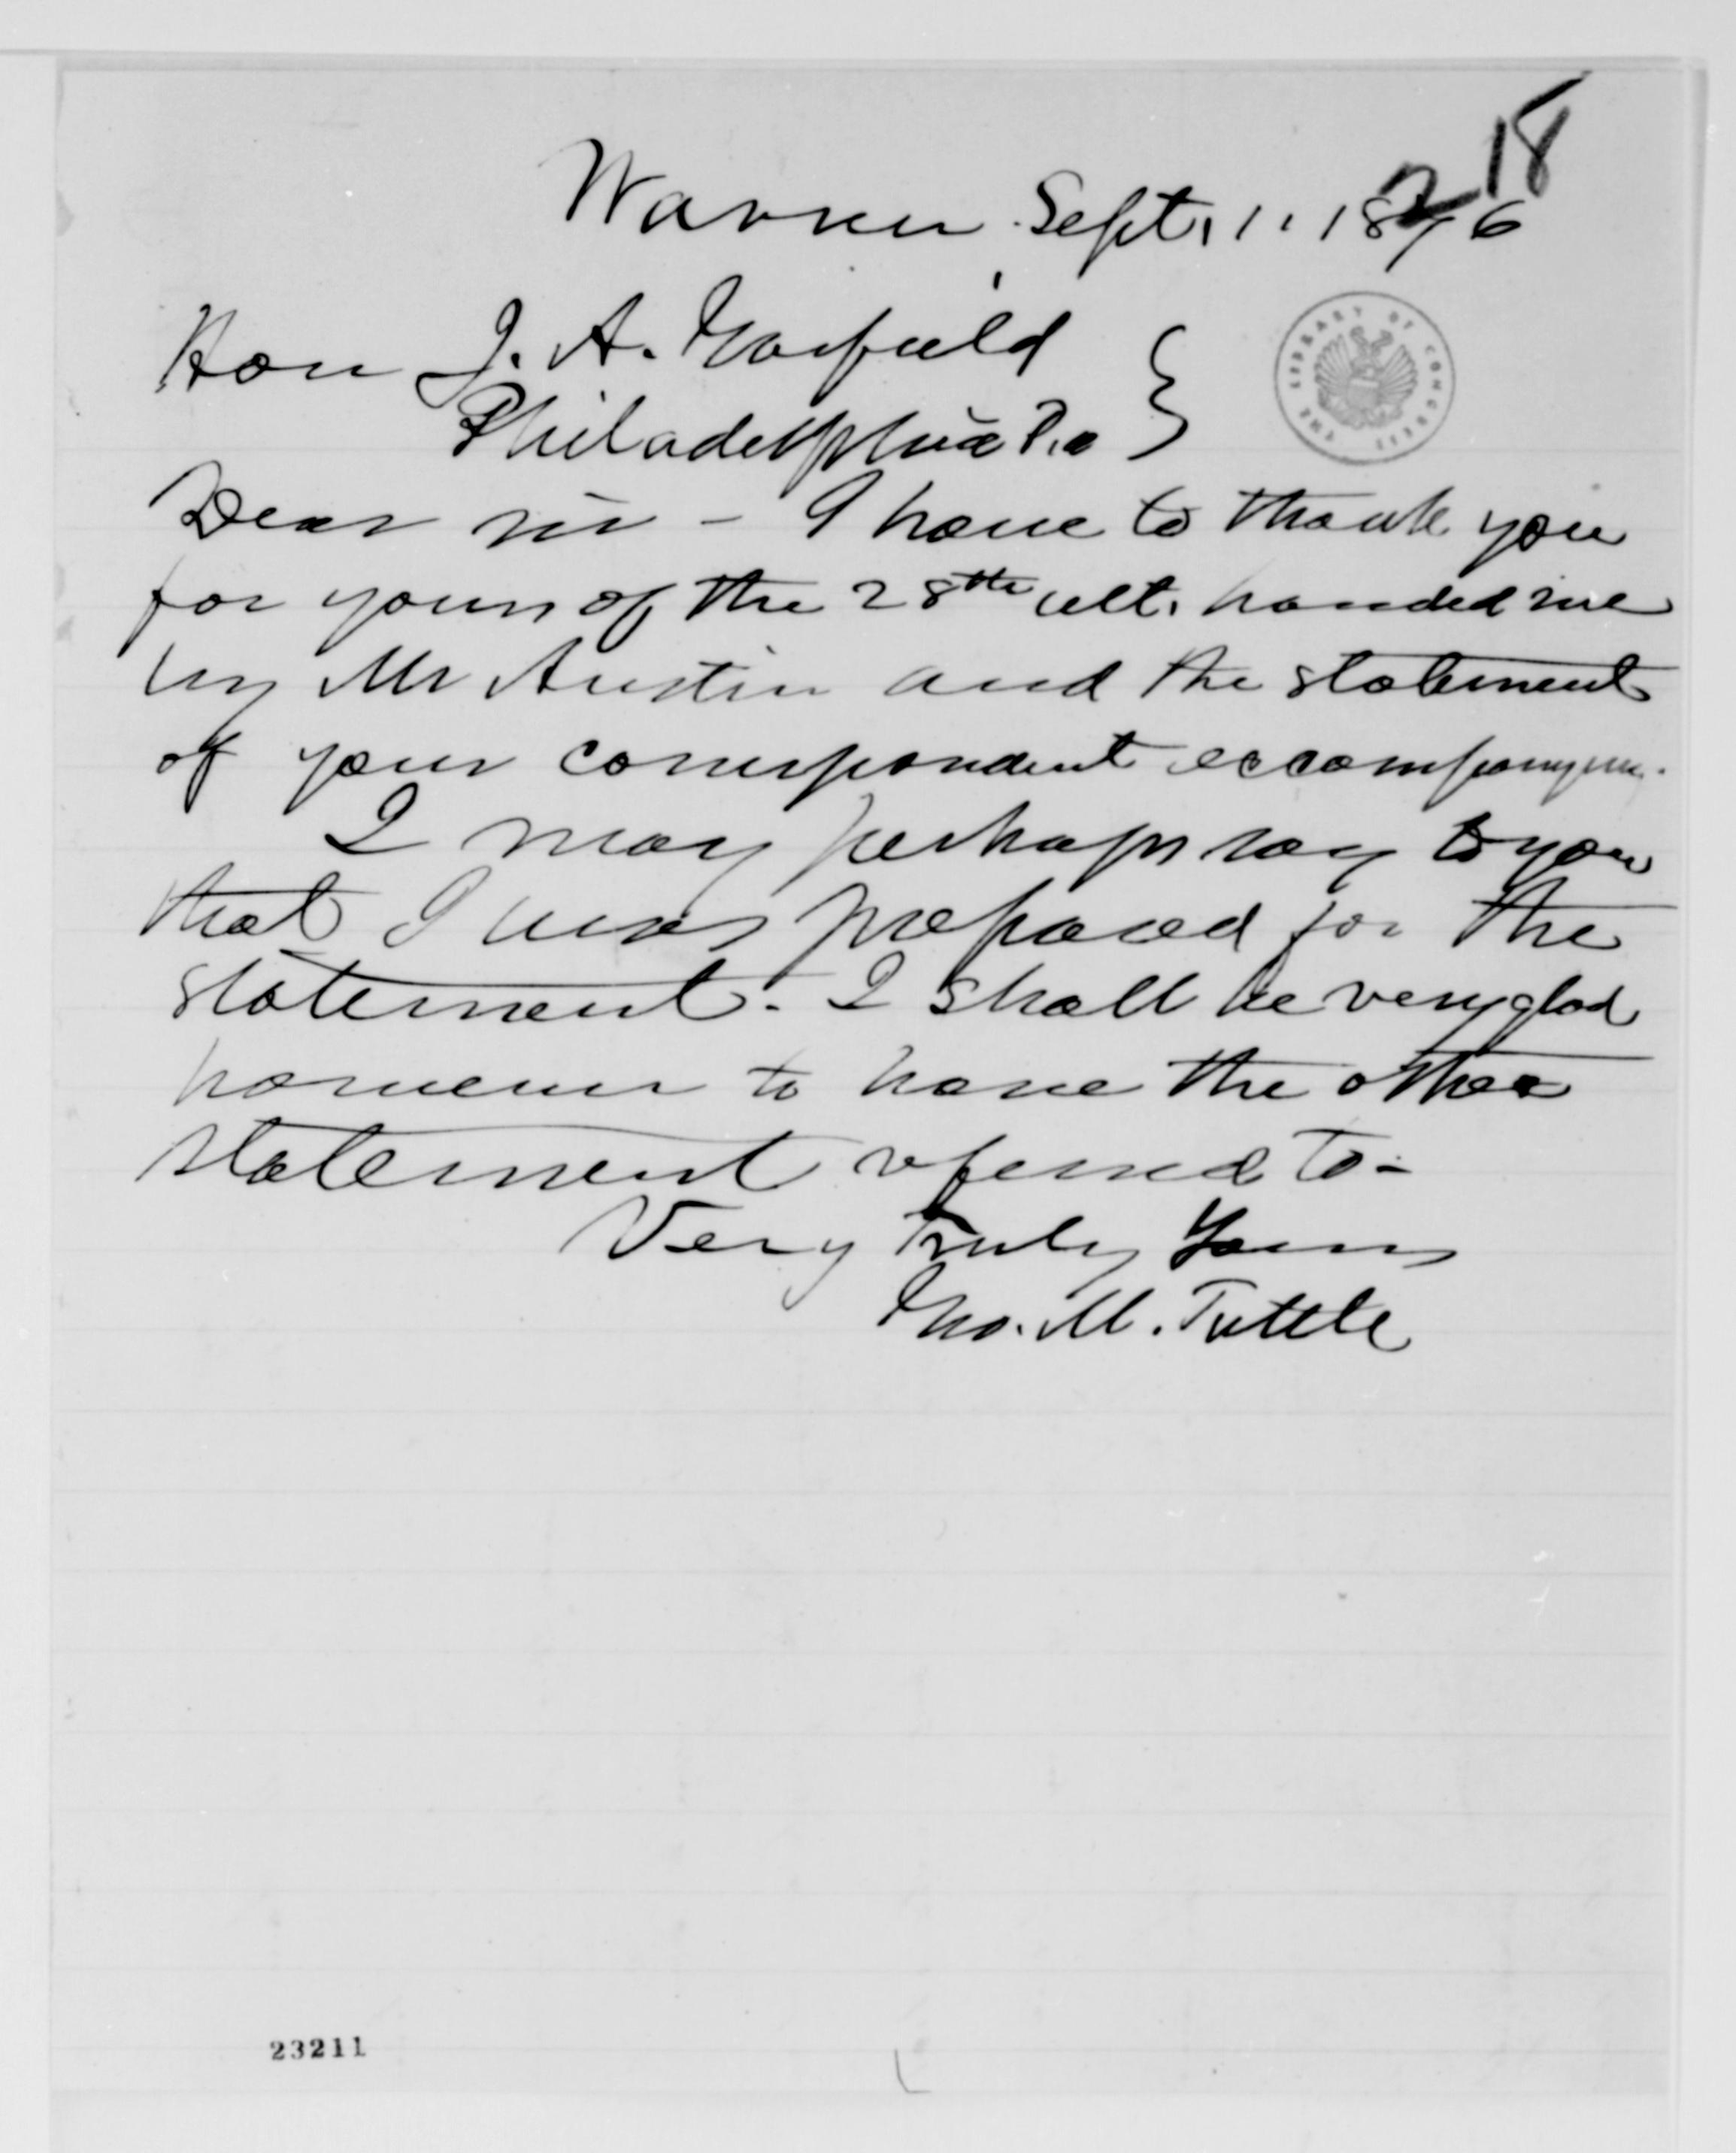 218
Warren Sept. 1. 1876
Hon J. A. Garfield
Philadelphia Pa
THE LIBRARY OF CONGRESS
Dear sir - I have to thank you
for yours of the 28th ult. handed me
by Mr Austin and the statement
of your correspondent accompanying.
I may perhaps say to you
that I was prepared for the
statement. I shall be very glad
however to have the other
statement referred to -
Very Truly Yours
Geo. M. Tuttle
23211